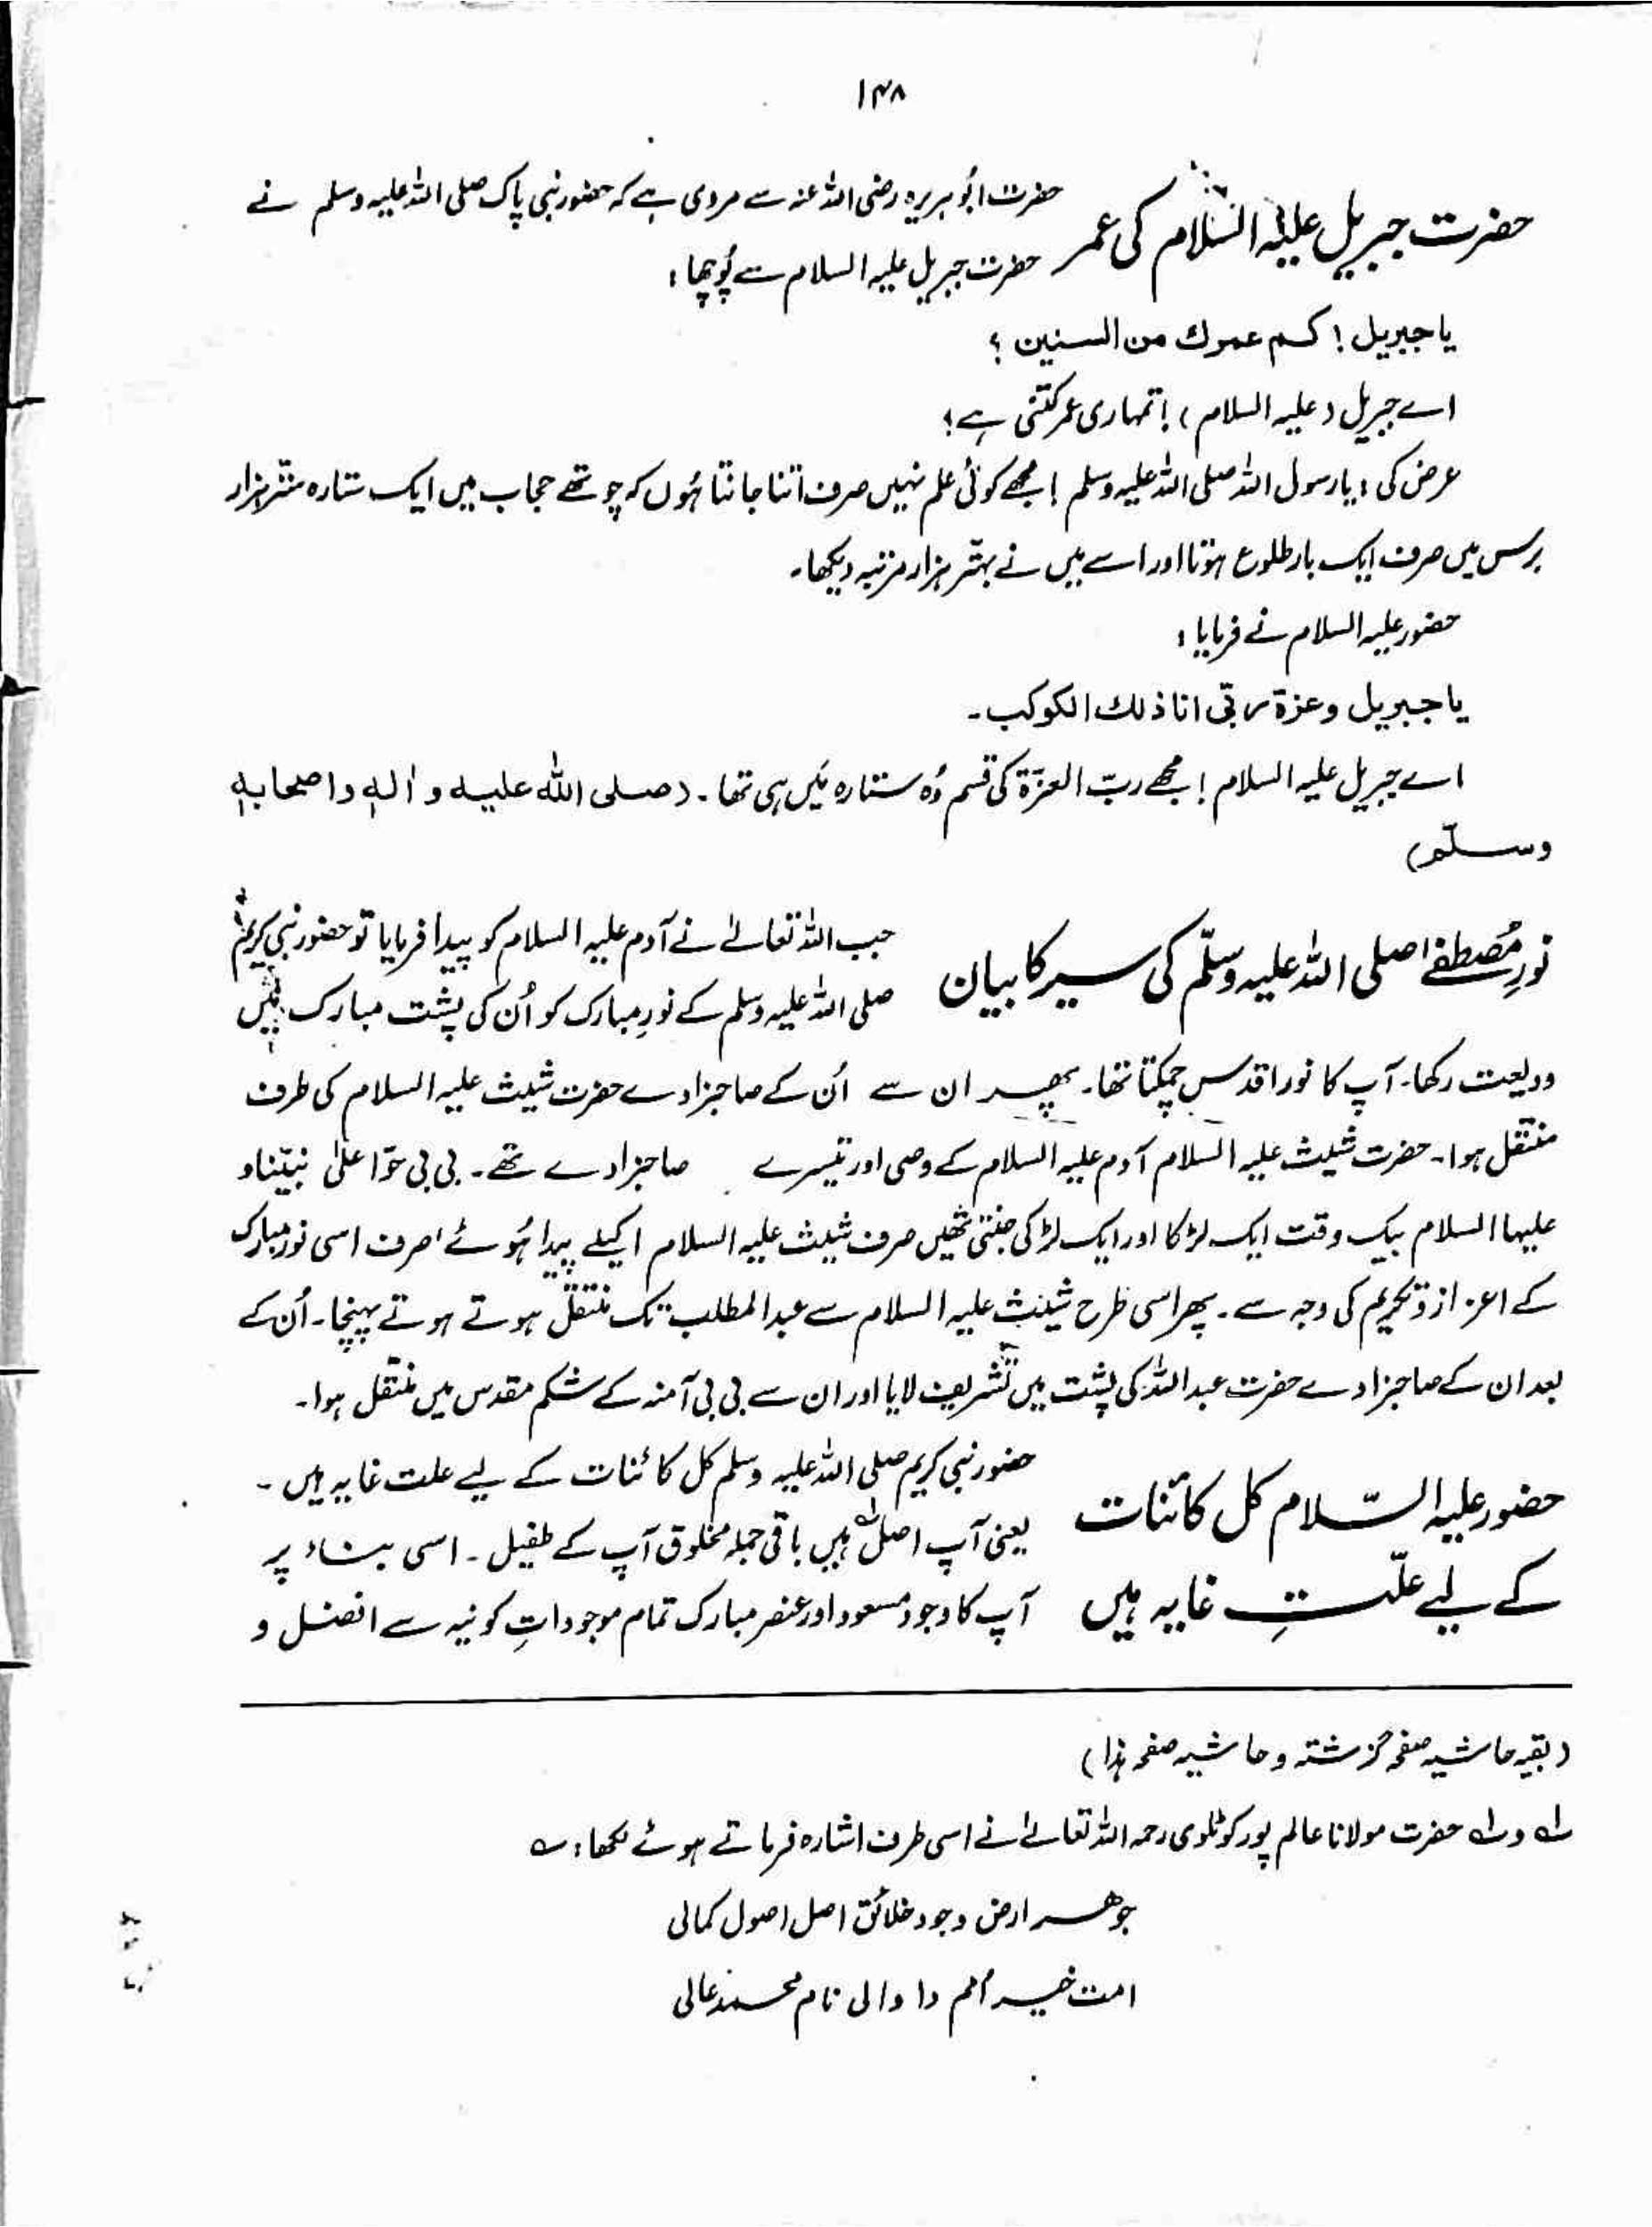 ۱۴۸
حضرت جبریل علیہ السّلام کی عمر
حضرت ابُو ہریرہ رضی اللہ عنہ سے مروی ہے کہ حضور نبی پاک صلی اللہ علیہ وسلم نے
حضرت جبریل علیہ السلام سے پُوچھا:
یا جبریل! کم عمرك من السنین؟
اے جبریل (علیہ السلام)! تمہاری عمر کتنی ہے؟
عرض کی: یا رسول اللہ صلی اللہ علیہ وسلم! مجھے کوئی علم نہیں صرف اتنا جانتا ہُوں کہ چوتھے حجاب میں ایک ستارہ ستّر ہزار
برس میں صرف ایک بار طلوع ہوتا اور اسے میں نے بہتّر ہزار مرتبہ دیکھا۔
حضور علیہ السلام نے فرمایا:
یا جبریل وعزة ربّی انا ذلك الکوکب۔
اے جبریل علیہ السلام! مجھے ربّ العزّة کی قسم وُہ ستارہ مَیں ہی تھا۔ (صلی اللہ علیہ و اٰلہٖ واصحابہٖ
وسلّم)
نورِ مُصطفےٰ صلی اللہ علیہ وسلّم کی سیر کا بیان
جب اللہ تعالےٰ نے آدم علیہ السلام کو پیدا فرمایا تو حضور نبی کریم
صلی اللہ علیہ وسلم کے نورِ مبارک کو اُن کی پشت مبارک میں
ودیعت رکھا۔ آپ کا نور اقدس چمکتا تھا۔ پھر ان سے اُن کے صاحبزادے حضرت شیث علیہ السلام کی طرف
منتقل ہوا۔ حضرت شیث علیہ السلام آدم علیہ السلام کے وصی اور تیسرے صاحبزادے تھے۔ بی بی حوّا علیٰ نبیّنا و
علیہا السلام بیک وقت ایک لڑکا اور ایک لڑکی جنتی تھیں صرف شیث علیہ السلام اکیلے پیدا ہُوئے، صرف اسی نور مبارک
کے اعزاز و تکریم کی وجہ سے۔ پھر اسی طرح شیث علیہ السلام سے عبدالمطلب تک منتقل ہوتے ہوتے پہنچا۔ اُن کے
بعد ان کے صاحبزادے حضرت عبداللہ کی پشت میں تشریف لایا اور ان سے بی بی آمنہ کے شکم مقدس میں منتقل ہوا۔
حضور علیہ السّلام کل کائنات
کے لیے علّتِ غایہ ہیں
حضور نبی کریم صلی اللہ علیہ وسلم کل کائنات کے لیے علت غایہ ہیں۔
یعنی آپ اصل ہیں باقی جملہ مخلوق آپ کے طفیل۔ اسی بناء پر
آپ کا وجود مسعود اور عنصر مبارک تمام موجوداتِ کونیہ سے افضل و
(بقیہ حاشیہ صفحہ گزشتہ و حاشیہ صفحہ ہٰذا)
حضرت مولانا عالم پور کوٹلوی رحمہ اللہ تعالےٰ نے اسی طرف اشارہ فرماتے ہوئے لکھا: ؎
جوھر ارض وجود خلائق اصل اصول کمالی
امت خیر اُمم دا والی نام محمد عالی